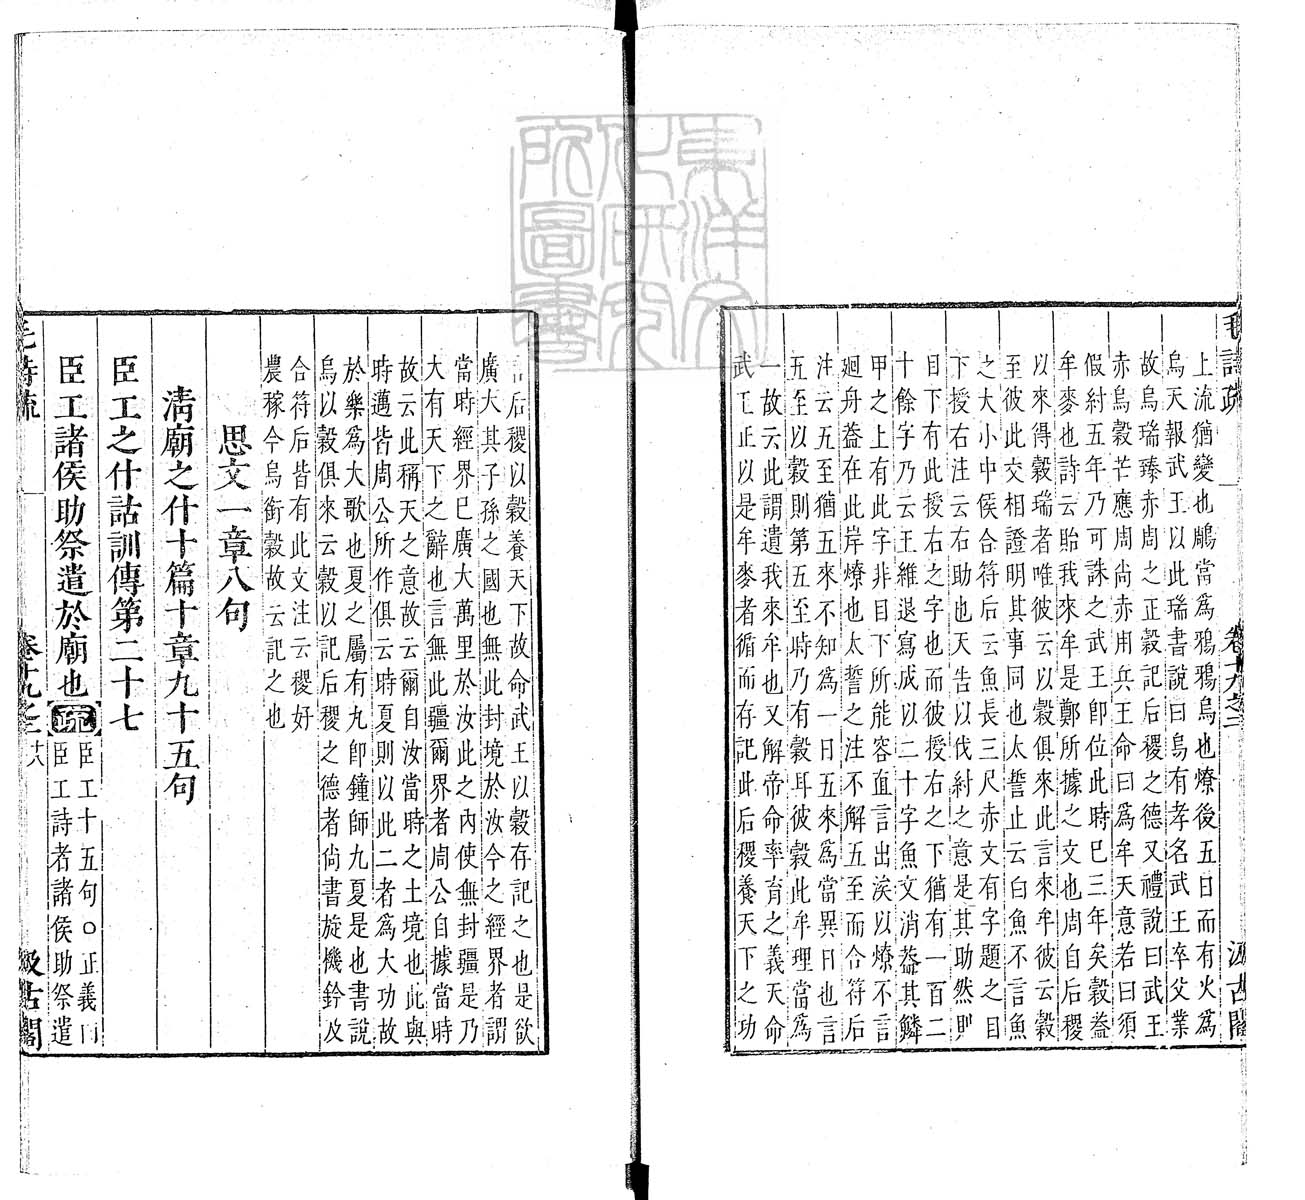 毛詩疏 卷十九之二 汲古閣
上流猶變也鵰當爲鴉鴉烏也燎後五日而有火爲
烏天報武王以此瑞書說曰烏有孝名武王卒父業
故烏瑞臻赤周之正穀記后稷之德又禮說曰武王
赤烏穀芒應周尚赤用兵王命曰爲牟天意若曰須
假紂五年乃可誅之武王即位此時已三年矣穀蓋
牟麥也詩云貽我來牟是鄭所據之文也周自后稷
以來得穀瑞者唯彼云以穀俱來此言來牟彼云穀
至彼此交相證明其事同也太誓止云白魚不言魚
之大小中侯合符后云魚長三尺赤文有字題之目
下授右注云右助也天告以伐紂之意是其助然則
目下有此授右之字也而彼授右之下猶有一百二
十餘字乃云王維退寫成以二十字魚文消蓋其鱗
甲之上有此字非目下所能容直言出涘以燎不言
廻舟蓋在此岸燎也太誓之注不解五至而合符后
注云五至猶五來不知爲一日五來爲當異日也言
五至以穀則第五至時乃有穀耳彼穀此牟理當爲
一故云此謂遺我來牟也又解帝命率育之義天命
武王正以是牟麥者循而存記此后稷養天下之功
言后稷以穀養天下故命武王以穀存記之也是欲
廣大其子孫之國也無此封境於汝今之經界者謂
當時經界已廣大萬里於汝此之內使無封疆是乃
大有天下之辭也言無此疆爾界者周公自據當時
故云此稱天之意故云爾自汝當時之土境也此與
時邁皆周公所作俱云時夏則以此二者爲大功故
於樂爲大歌也夏之屬有九即鐘師九夏是也書說
烏以穀俱來云穀以記后稷之德者尚書旋機鈐及
合符后皆有此文注云稷好
農稼今烏銜穀故云記之也
思文一章八句
清廟之什十篇十章九十五句
臣工之什詁訓傳第二十七
臣工諸侯助祭遣於廟也 疏 臣工十五句○正義曰
臣工詩者諸侯助祭遣
毛詩疏 卷十九之二 十八 汲古閣
東洋文化研究所圖書